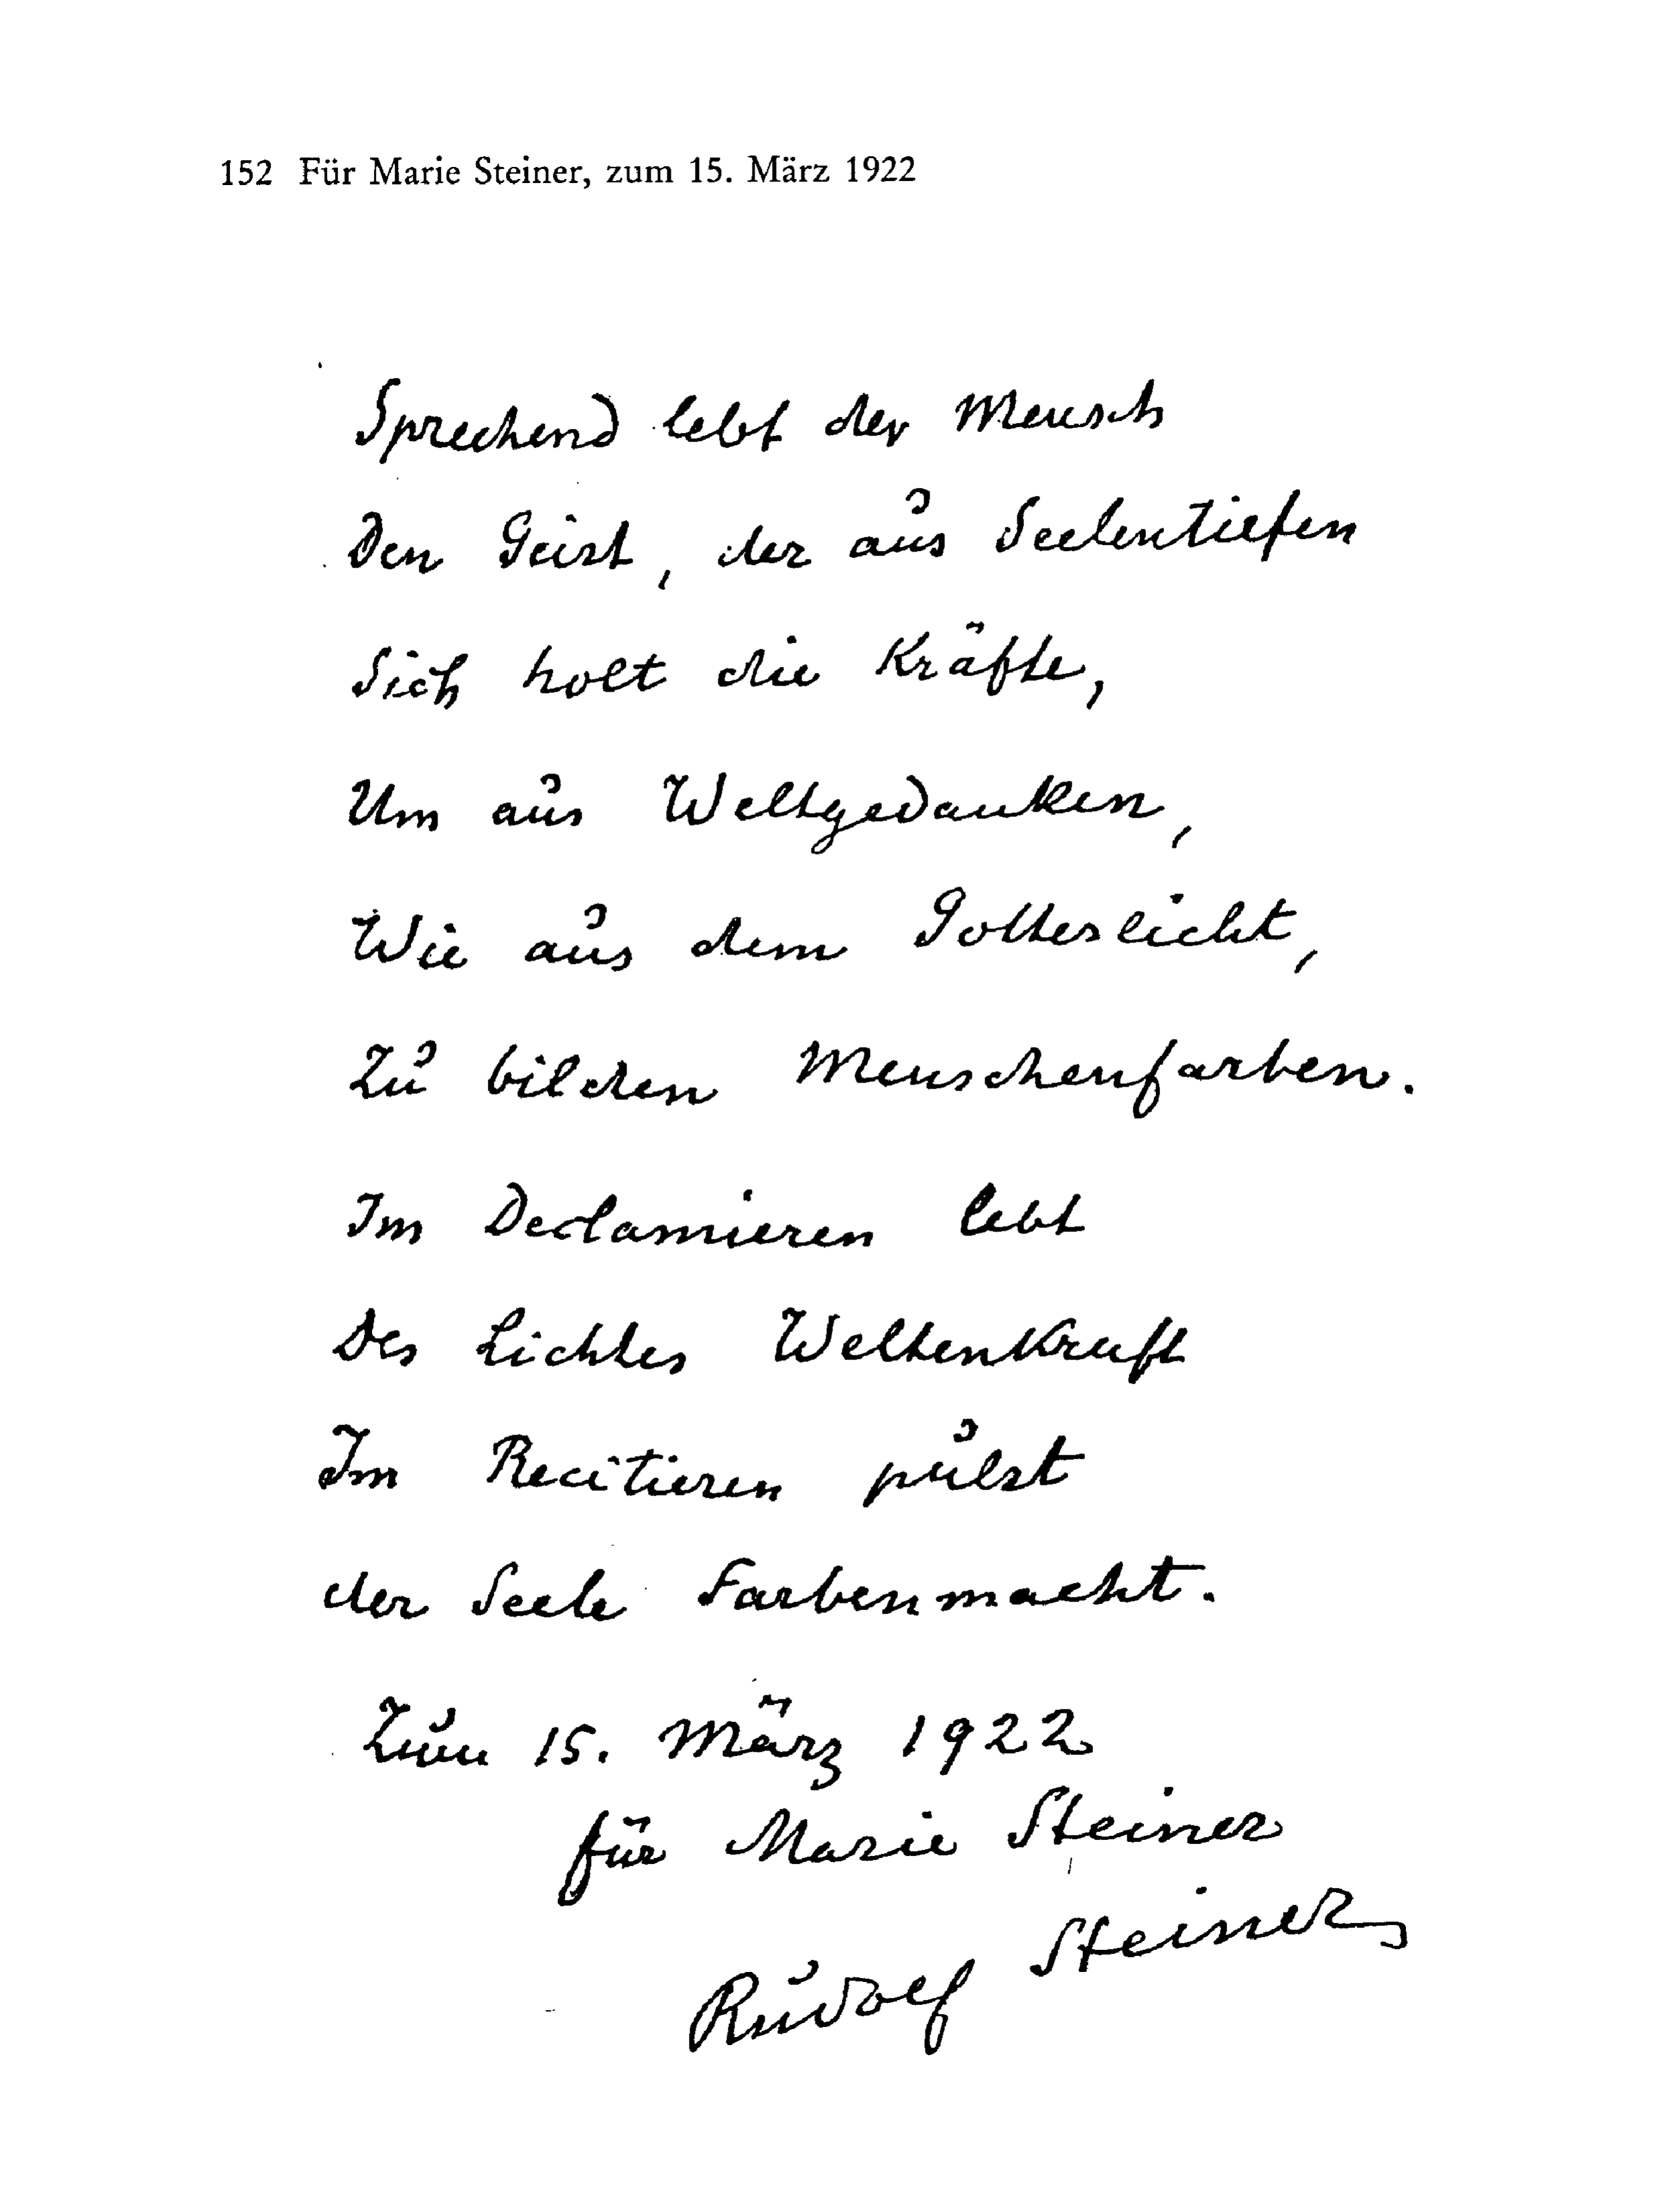 152 Für Marie Steiner, zum 15. März 1922
Sprechend lebt der Mensch
Den Geist, der aus Seelentiefen
Sich holt die Kräfte,
Um aus Weltgedanken,
Wie aus dem Gotteslicht,
Zu bilden Menschenfarben.
Im Declamieren lebt
Des Lichtes Weltenkraft
Im Recitieren pulst
der Seele Farbenmacht.
Zum 15. März 1922
für Marie Steiner
Rudolf Steiner